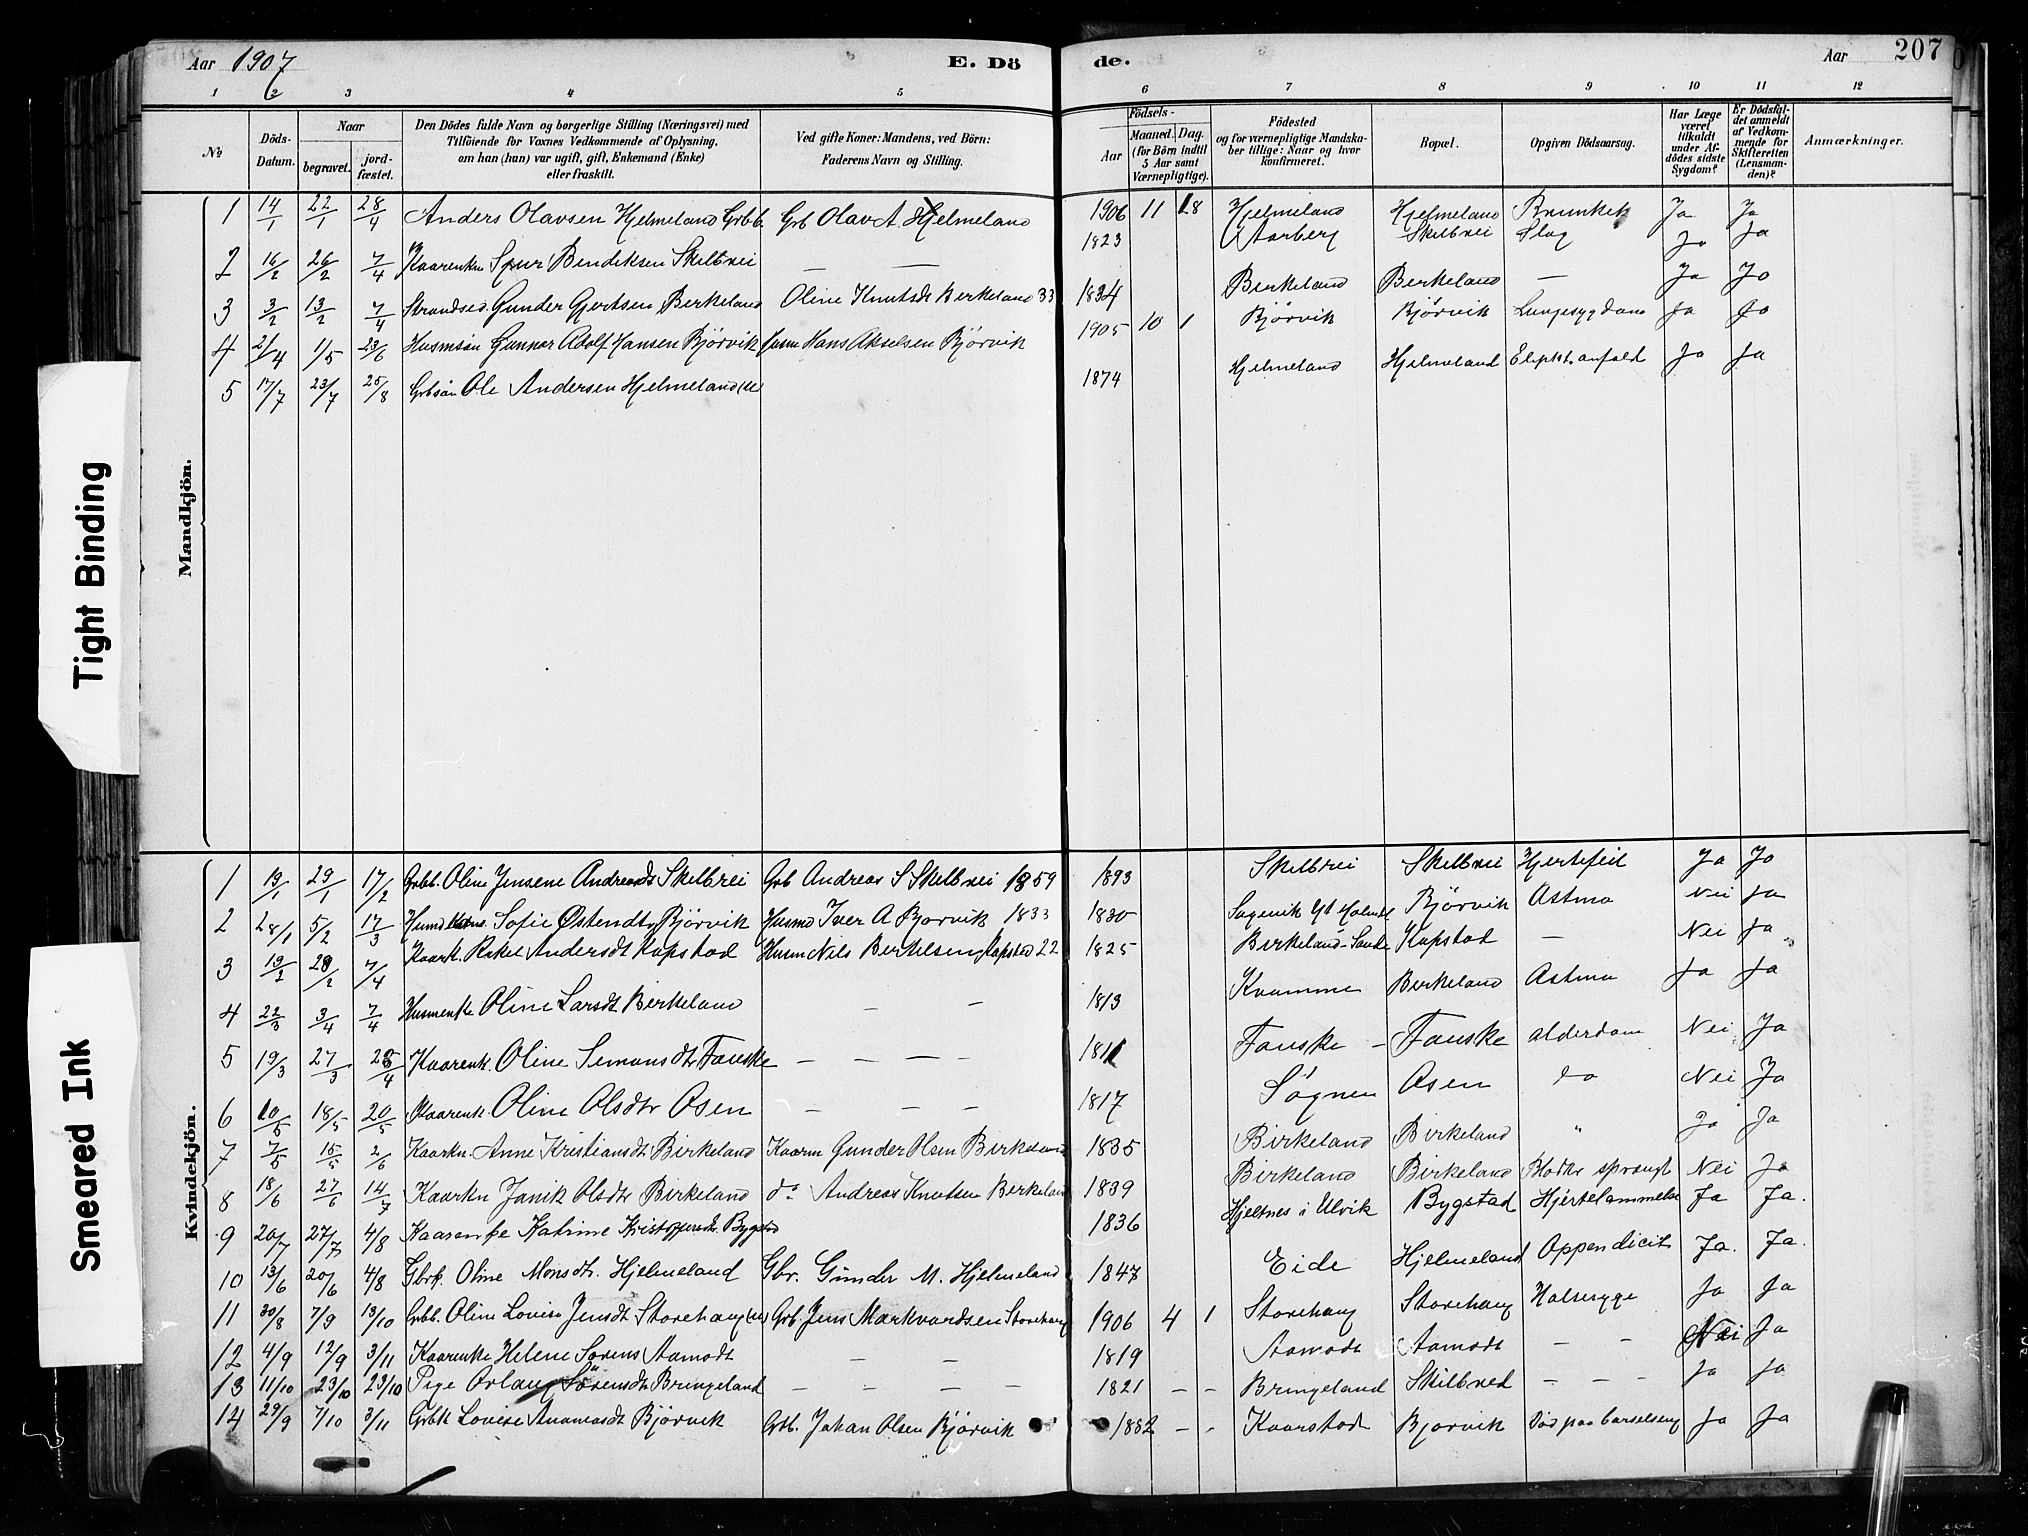 Aar 1907
E. Dö
de.
Aar
207
1 2 3 4 5 6 7 8 9 10 11 12
No
Döds-Datum.
Naar
begravet.
jord-fæstet.
Den Dödes fulde Navn og borgerlige Stilling (Næringsvei) med
Tilföiende for Voxnes Vedkommende af Oplysning,
om han (hun) var ugift, gift, Enkemand (Enke)
eller fraskilt.
Ved gifte Koner: Mandens, ved Börn:
Faderens Navn og Stilling.
Födsels-
Aar
Maaned. Dag.
(for Börn indtil
5 Aar samt
Værnepligtige).
Födested
og for værnepligtige Mandska-
ber tillige: Naar og hvor
konfirmeret.
Bopæl.
Opgiven Dödsaarsag.
Har Læge
været
tilkaldt
under Af-
dödes sidste
Sygdom?
Er Dödsfal-
det anmeldt
af Vedkom-
mende for
Skifteretten
(Lensman-
den)?
Anmærkninger.
Mandkjön.
1 14/1 22/1 28/4 Anders Olavsen Hjelmeland Grbb. Grb Olav A. Hjelmeland 1906 11 18 Hjelmeland Hjelmeland Ja Ja
2 16/2 26/2 7/4 Kaarenkm Bendiksen Skilbrei — — 1823 Aarberg Skilbrei Slag Ja Ja
3 3/2 13/2 7/4 Strandsid. Gunder Gjertsen Birkeland Oline Knutsdt Birkeland 33 1834 Birkeland Birkeland — Ja Ja
4 21/4 1/5 23/6 Husmsön Gunnar Adolf Hansen Bjørvik Husm Hans Akselsen Bjørvik 1905 10 1 Bjørvik Bjørvik Lungesygdom Ja Ja
5 17/7 23/7 25/8 Grbsön Ole Andersen Hjelmeland (u) 1874 Hjelmeland Hjelmeland Elipkt. anfald Ja Ja
Kvindekjön.
1 19/1 29/1 17/2 Grbb. Oline Jensene Andreasdt Skilbrei Grb Andreas S Skilbrei 1859 1893 Skilbrei Skilbrei Hjertefeil Ja Ja
2 28/1 5/2 17/3 Sofie Østensdtr Bjørvik Husmd Iver A Bjørvik 1833 1830 Bjørvik Astma Nei Ja
3 19/2 28/2 7/4 Kaark. Rakel Andersdt Kapstad Husm Nils Bertilsen Kapstad 22 1825 Birkeland-Sande Kapstad — Nei Ja
4 22/3 3/4 7/4 Husmenke Oline Larsdt Birkeland — — 1813 Kvamme Birkeland Astma Ja Ja
5 19/3 27/3 28/4 Kaarenk. Oline Simonsdtr Fauske — — — — 1811 Fauske – Fauske alderdom Nei Ja
6 10/5 18/5 20/5 Kaarenk Oline Olsdtr Osen — — — 1817 Søgnen Osen do Nei Ja
7 7/5 15/5 2/6 Kaarkn. Anne Kristiansdt Birkeland Kaarm Gunder Olsen Birkeland 1835 Birkeland Birkeland " Ja Ja
8 18/6 27/6 14/7 Kaarkn Janik Olsdtr Birkeland do Andreas Knutsen Birkeland 1839 Birkeland Birkeland Blodkr sprængt Nei Ja
9 20/7 27/7 4/8 Kaarenke Katrine Kristoffersdtr. Bygstad 1836 Hjeltnes i Ulvik Bygstad Hjertelammelse Ja Ja.
10 13/6 20/6 4/8 Gbrk. Oline Monsdtr. Hjelmeland Gbr. Gunder M. Hjelmeland 1847 Eide Hjelmeland Appendicit Ja. Ja.
11 30/8 7/9 13/10 Grbb. Oline Lovise Jensdt Storehaug (u) Grb. Jens Markvardsen Storehaug 1906 4 1 Storehaug Storehaug Halssyge Ja Ja
12 4/9 12/9 3/11 Kaarenke Helene Sørens Aamodt — — 1819 Aamodt Aamodt — — Nei Ja
13 11/10 23/10 23/10 Pige Orlaug Sörensdt Bringeland — — — 1821 – – Bringeland Skilbred — — — Ja Ja
14 29/9 7/10 3/11 Grbk Lovise Bjørvik Grb. Johan Olsen Bjørvik 1882 – – Kaarstad Bjørvik Död paa barselseng Ja Ja
Tight Binding
Smeared Ink